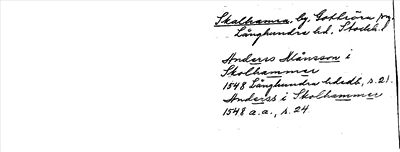 Skalhamra, by, Gottröra sn,
Långhundra hd, Stockh.
Anders Månsson i
Skolhammer
1548 Långhundra hdsdb, s. 21.
Anders i Skolhammer
1548 a.a., s. 24